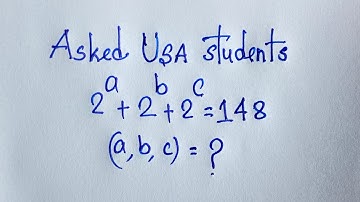 Asked USA students
2^a + 2^b + 2^c = 148
(a, b, c) = ?